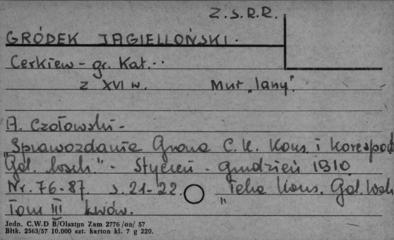 Z.S.R.R.
GRÓDEK JAGIELLOŃSKI.
Cerkiew - gr. Kat.
z XVI w. Mur „lany".
A. Czołowski -
Sprawozdanie Grona C.K. Kons. i Korespod
"Gal. wsch." - Styczeń - grudzień 1910
Nr. 76-87 s. 21-22. "Teka Kons. Gal. Wsch
Tom III Lwów.
Jedn. C.W.D B/Olsztyn Zam 2776/on/ 57
Bltk. 2563/57 10.000 szt. karton kl. 7 g 220.